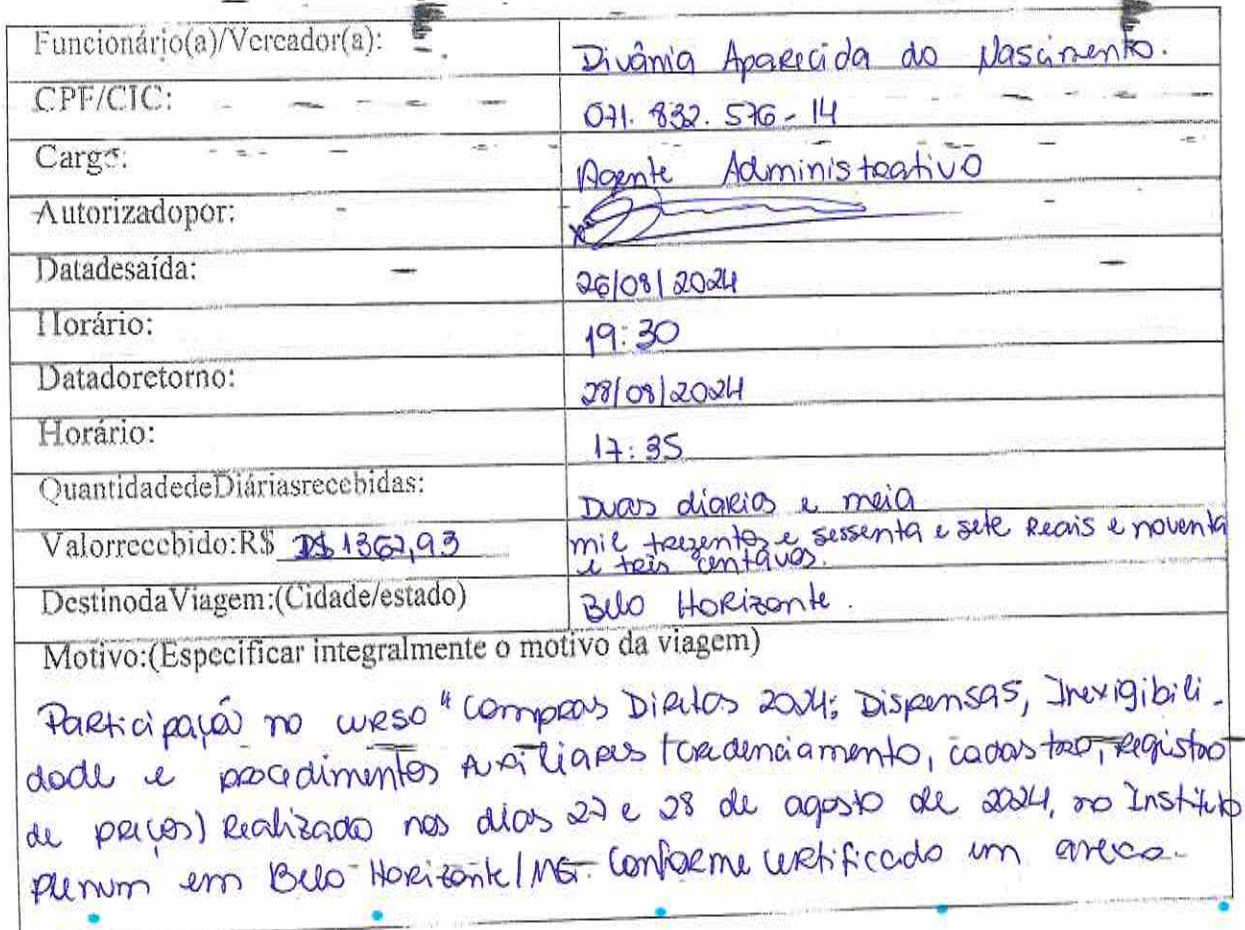 Funcionário(a)/Vereador(a): Divânia Aparecida do Nascimento.
CPF/CIC: 071.832.576-14
Cargo: Agente Administrativo
Autorizadopor:
Datadesaída: 26/08/2024
Horário: 19:30
Datadoretorno: 28/08/2024
Horário: 17:35
QuantidadedeDiáriasrecebidas: Duas diarias e meia
Valorrecebido:R$ R$ 1367,93 mil trezentos e sessenta e sete reais e noventa
e três centavos.
DestinodaViagem:(Cidade/estado) Belo Horizonte.
Motivo:(Especificar integralmente o motivo da viagem)
Participação no curso "Compras Diretas 2024: Dispensas, Inexigibili-
dade e procedimentos Auxiliares (credenciamento, cadastro, registro
de preços) Realizado nos dias 27 e 28 de agosto de 2024, no Instituto
plenum em Belo Horizonte/MG. Conforme certificado em anexo.